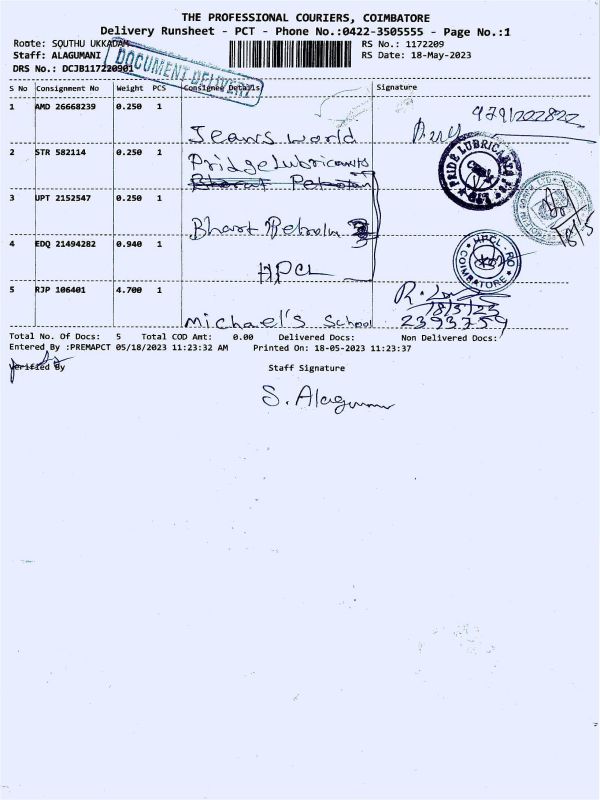 THE PROFESSIONAL COURIERS, COIMBATORE
Delivery Runsheet - PCT - Phone No.:0422-3505555 - Page No.:1
Route: SOUTHU UKKADAM RS No.: 1172209
Staff: ALAGUMANI RS Date: 18-May-2023
DRS No.: DCJB117220901
DOCUMENT DELIVERY
S No Consignment No Weight PCS Consignee Details Signature
1 AMD 26668239 0.250 1
Jeans world
2 STR 582114 0.250 1 Pridge Lubricants
Bharat Petrolam
PRIDE LUBRICANTS
3 UPT 2152547 0.250 1
Bhart Petrolm
18/5
4 EDQ 21494282 0.940 1
HPCL
HPCL - RO
COIMBATORE
5 RJP 106401 4.700 1
18/5/23
Michael's School 2393759
Total No. Of Docs: 5 Total COD Amt: 0.00 Delivered Docs: Non Delivered Docs:
Entered By :PREMAPCT 05/18/2023 11:23:32 AM Printed On: 18-05-2023 11:23:37
Verified By Staff Signature
S. Alagumani